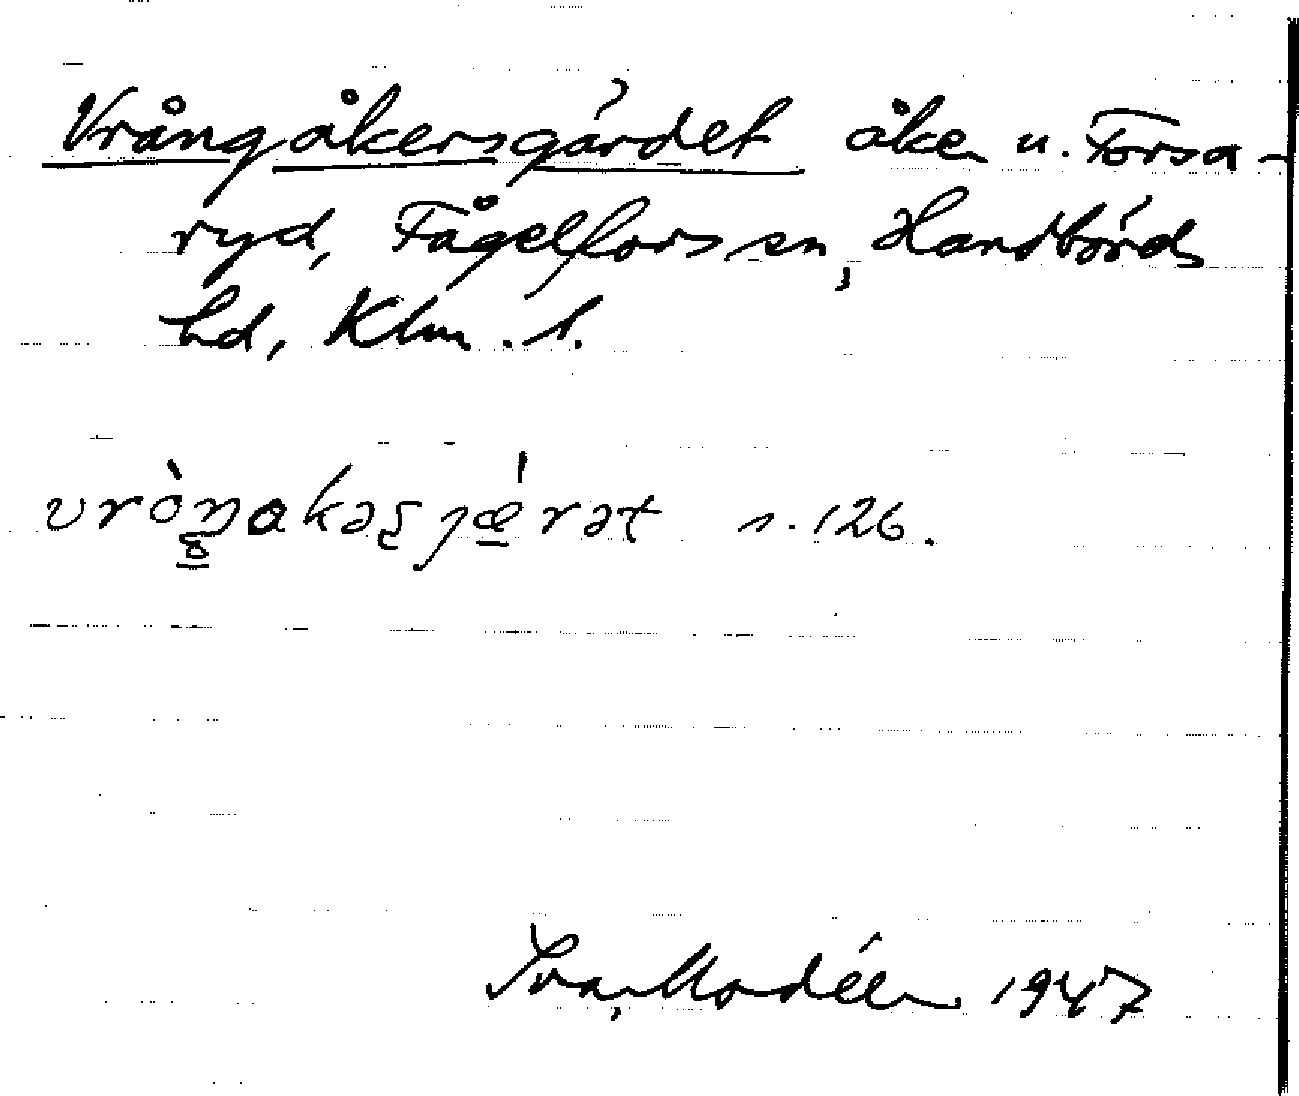 Vrångåkersgärdet åker u. Forsa-
ryd, Fågelfors sn, Handbörds
hd, Klm. l.
vrò̱ŋɑkəʂjǽ̱rət s. 126.
Ivar Modéer 1947